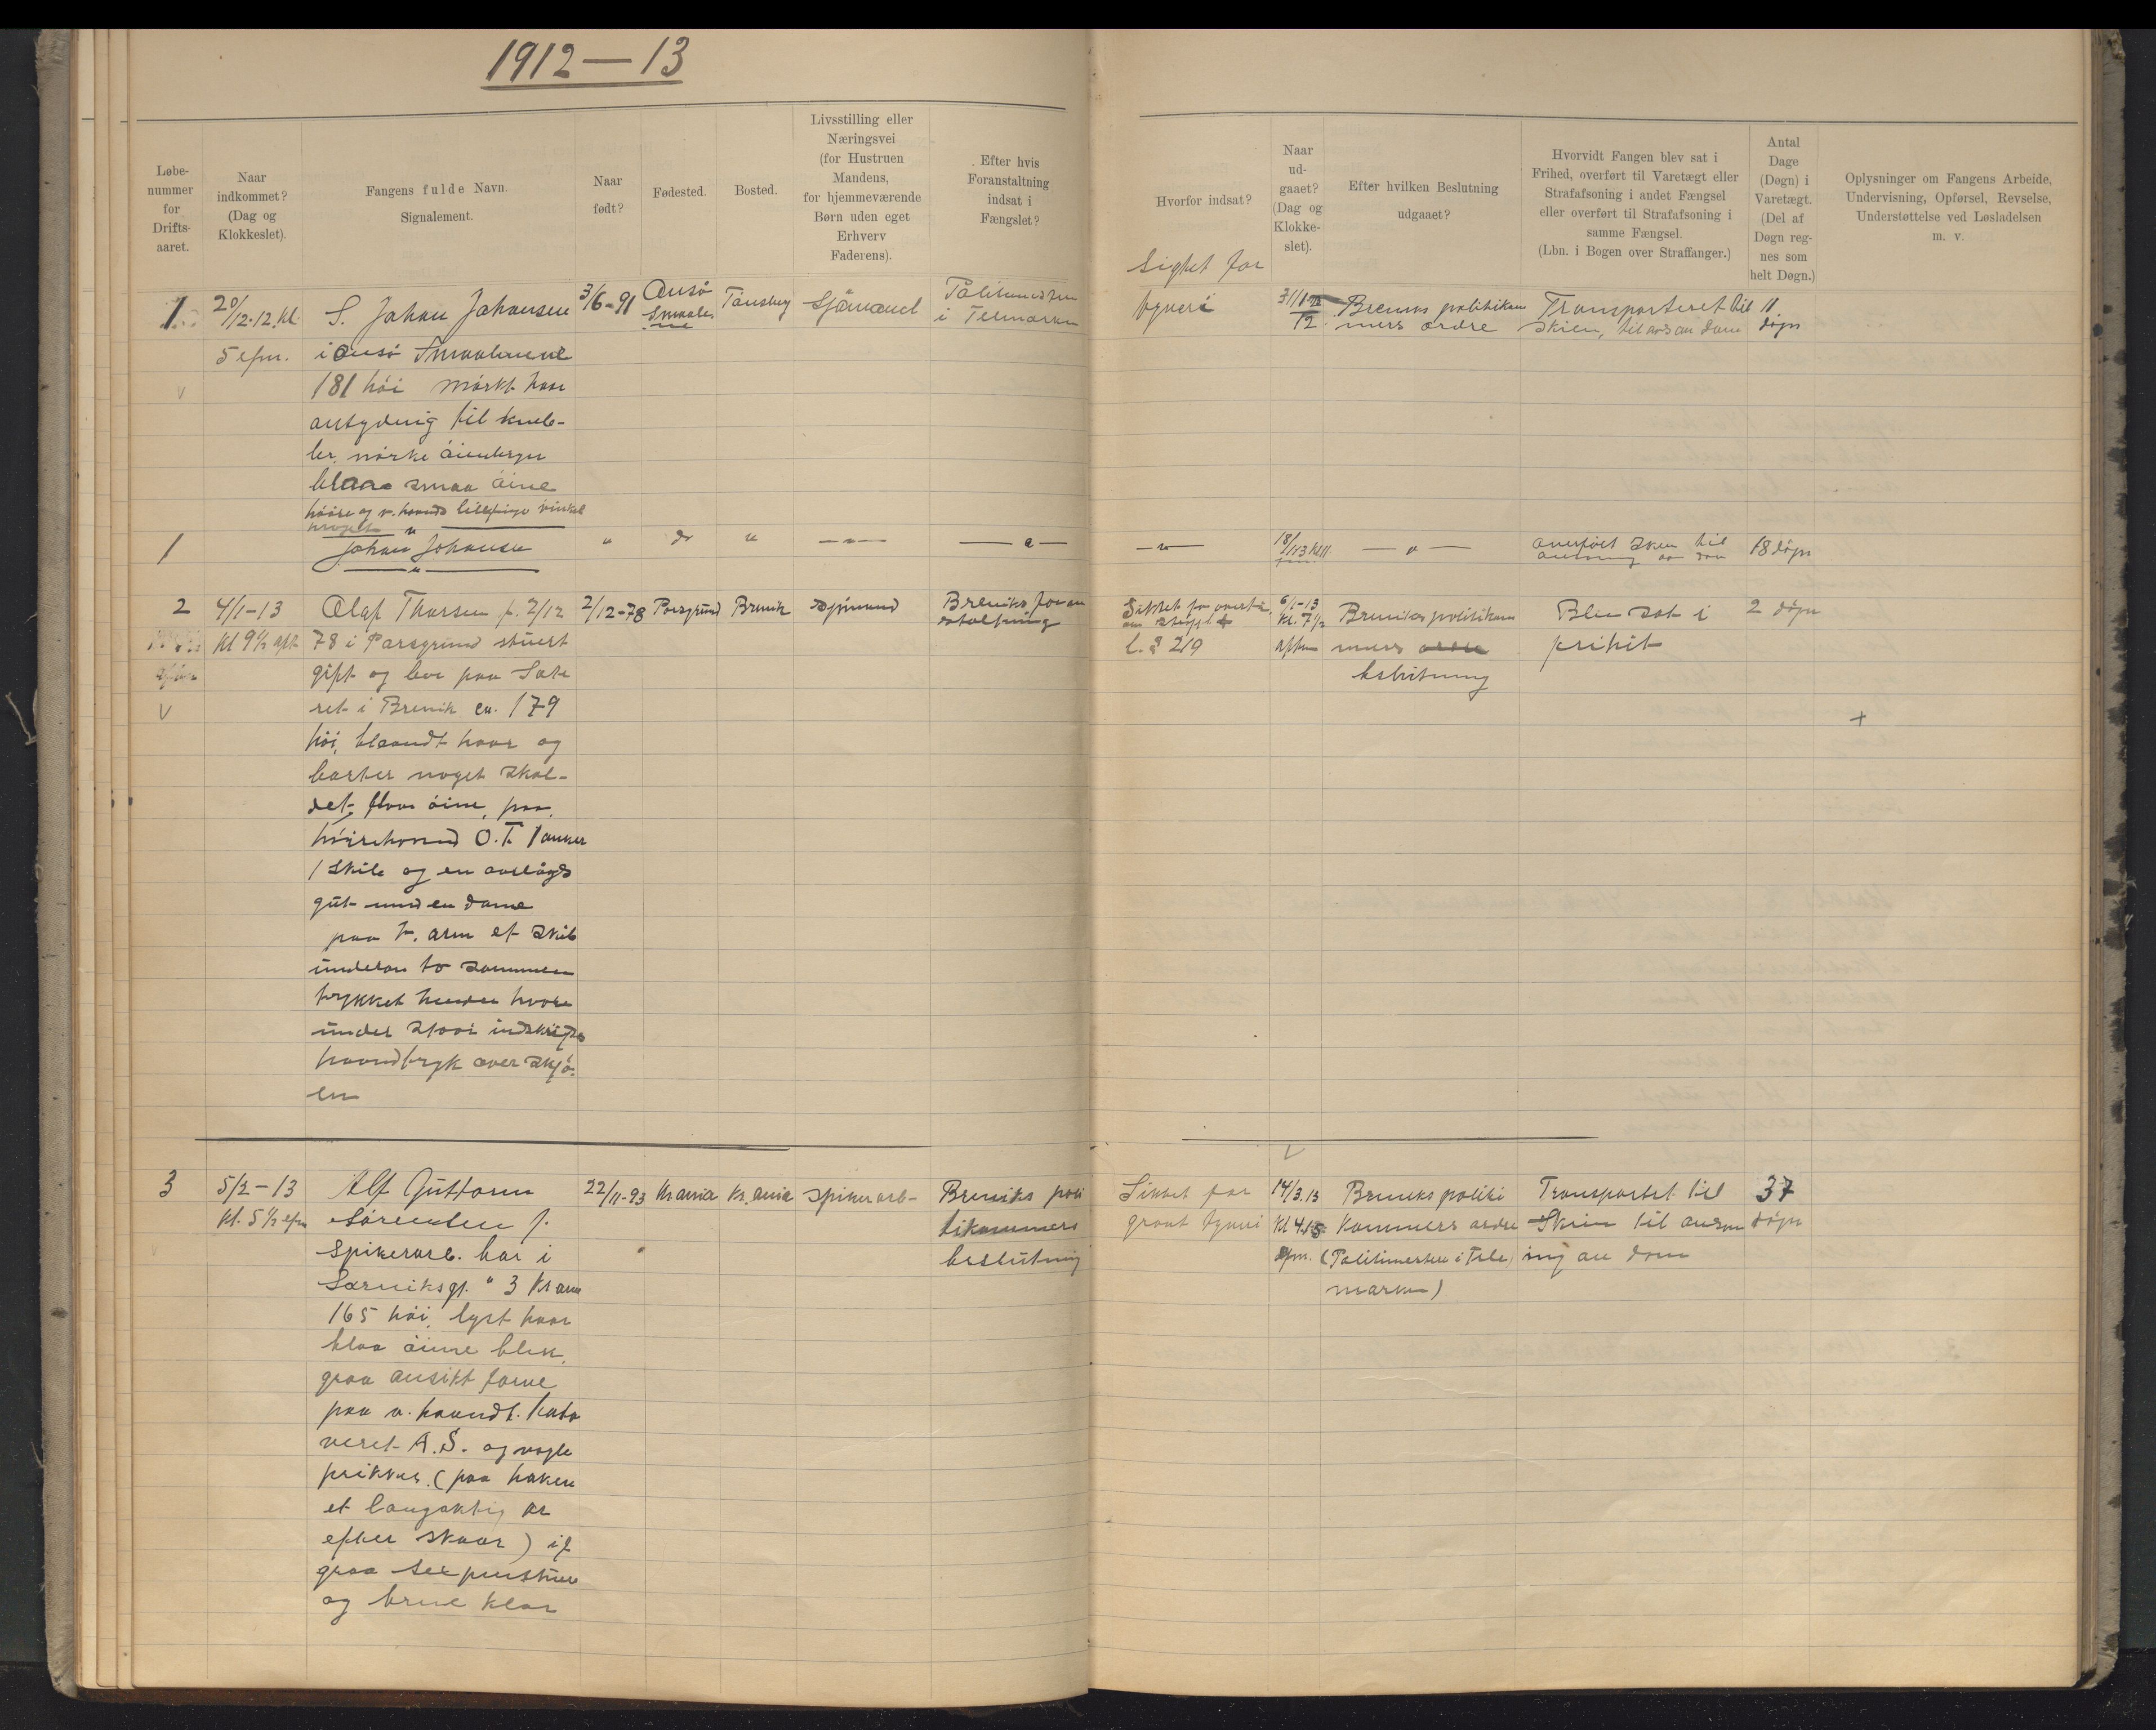 1912 — 13
Løbe-
nummer
for
Drifts-
aaret.
Naar
indkommet?
(Dag og
Klokkeslet).
Fangens fulde Navn.
Signalement.
Naar
født?
Fødested.
Bosted.
Livsstilling eller
Næringsvei
(for Hustruen
Mandens,
for hjemmeværende
Børn uden eget
Erhverv
Faderens).
Efter hvis
Foranstaltning
indsat i
Fængslet?
Hvorfor indsat?
Naar
ud-
gaaet?
(Dag og
Klokke-
slet).
Efter hvilken Beslutning
udgaaet?
Hvorvidt Fangen blev sat i
Frihed, overført til Varetægt eller
Strafafsoning i andet Fængsel
eller overført til Strafafsoning i
samme Fængsel.
(Lbn. i Bogen over Straffanger.)
Antal
Dage
(Døgn) i
Varetægt.
(Del af
Døgn reg-
nes som
helt Døgn.)
Oplysninger om Fangens Arbeide,
Undervisning, Opførsel, Revselse,
Understøttelse ved Løsladelsen
m. v.
1
20/12-12. kl.
5 efm.
S. Johan Johansen
i Onsö Smaalenene
181 höi mörkt haar
antydnig til kneb-
ler mörke öienbryn
blaa smaa öine
höire og v. haands lillefinger
3/6-91
Onsö
Smaale
ne
Tönsberg
Sjömand
Politimesteren
i Telmarken
Sigtet for
tyveri
Breviks politikam
mers ordre
Transporteret til
Skien, til
11
dögn
1
Johan Johansen
" do "
18/1 13 kl 11
overfört Skien til
18 dögn
2
4/1-13
Kl 9½ aft.
Olaf Thorsen f. 2/12
78 i Porsgrund stuert
gift og bor paa Sæte
ret i Brevik ca. 179
höi, blondt haar og
barter noget skal-
det, blaa öine, paa
höirehaand O.T. 1 anker
1 skib og en
gut med en dame
paa v. arm et skib
underen to sammen
trykket hender hvore
under staar indskrift
haandtryk over sjö-
en
2/12-78
Porsgrund
Brevik
Sjömand
Breviks foran
staltning
Siktet for overtr.
l. § 219
6/1-13
kl. 7½
aften
Breviks politikam
mers ordre
beslutning
Blev sat i
frihit
2 dögn
3
5/2-13
Kl. 5½ efm
Alf Guttorm
Sörensen f.
Spikerarb. bor i
3 Kr ania
165 höi, lyst haar
blaa öine blek
graa ansikt farve
paa v. haandt. tato
veret A.S. og nogle
prikker. (paa haken
et langaktig ar
efter skaar) if
graa
og brune klær
22/11-93
Kr ania
Kr. ania
Spikerarb-
Breviks poli
tikammers
beslutning
Siktet for
grovt tyveri
14/3.13
Kl 4.15
efm.
Breviks politi
kammers ordre
(Politimesteren i Tele
marken)
Transportet til
Skien til avson
ing av dom
37
dögn